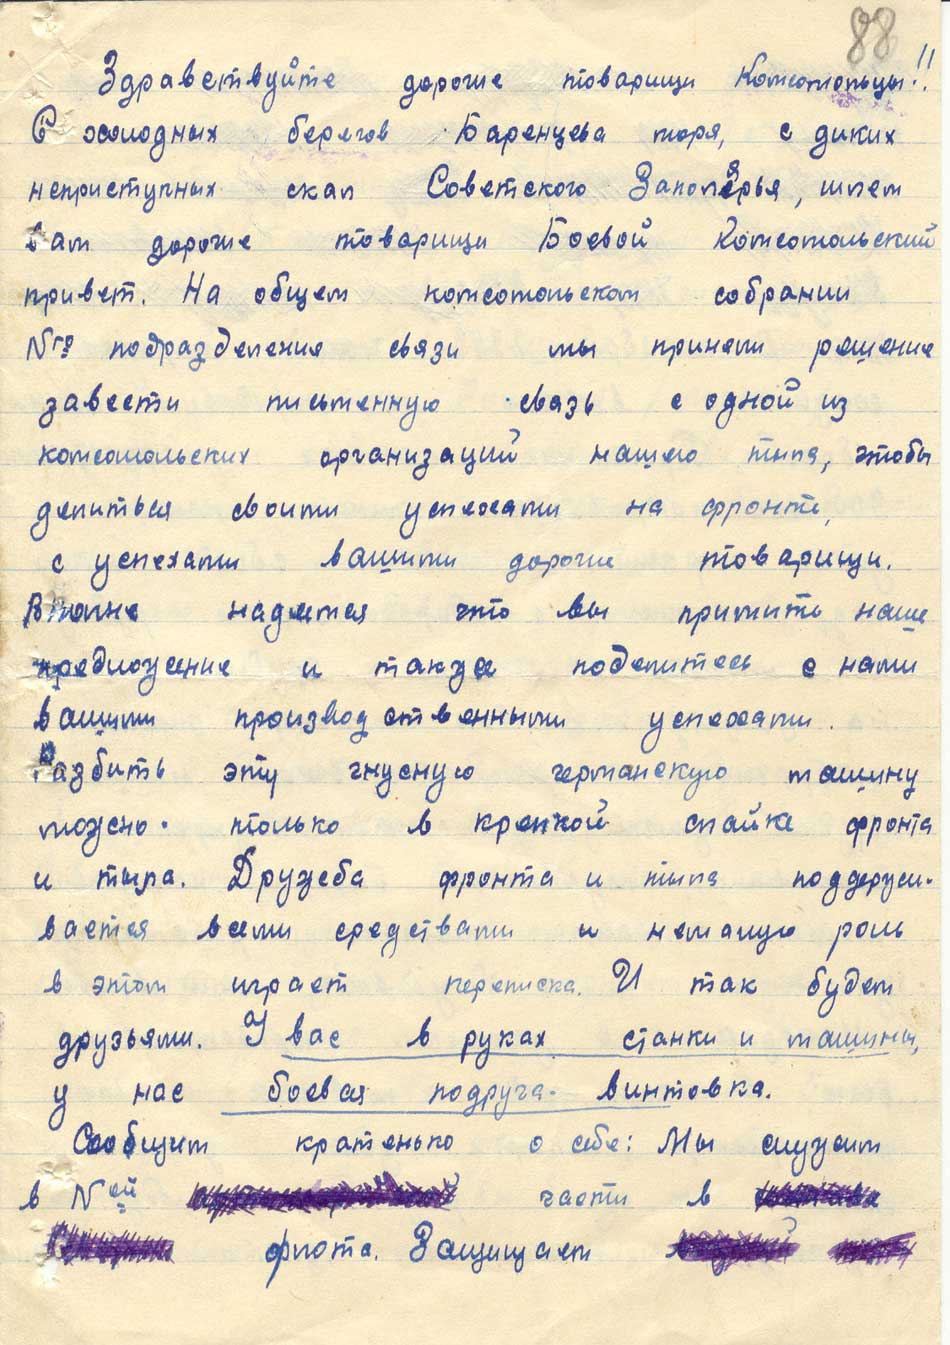 88
Здравствуйте дорогие товарищи Комсомольцы!!
С холодных берегов Баренцева моря, с диких
неприступных скал Советского Заполярья, шлем
вам дорогие товарищи Боевой Комсомольский
привет. На общем комсомольском собрании
Nго подразделения связи мы приняли решение
завести письменную связь с одной из
комсомольских организаций нашего тыла, чтобы
делиться своими успехами на фронте,
с успехами вашими дорогие товарищи.
Вполне надемся что вы примить наше
предложение и также поделитесь с нами
вашими производственными успехами.
Разбить эту гнусную германскую машину
можно только в крепкой спайке фронта
и тыла. Дружба фронта и тыла поддержи-
вается всеми средствами и немалую роль
в этом играет переписка. И так будем
друзьями. У вас в руках станки и машины,
у нас боевая подруга винтовка.
Сообщим кратенько о себе: Мы служим
в Nой части в
флота. Защищаем